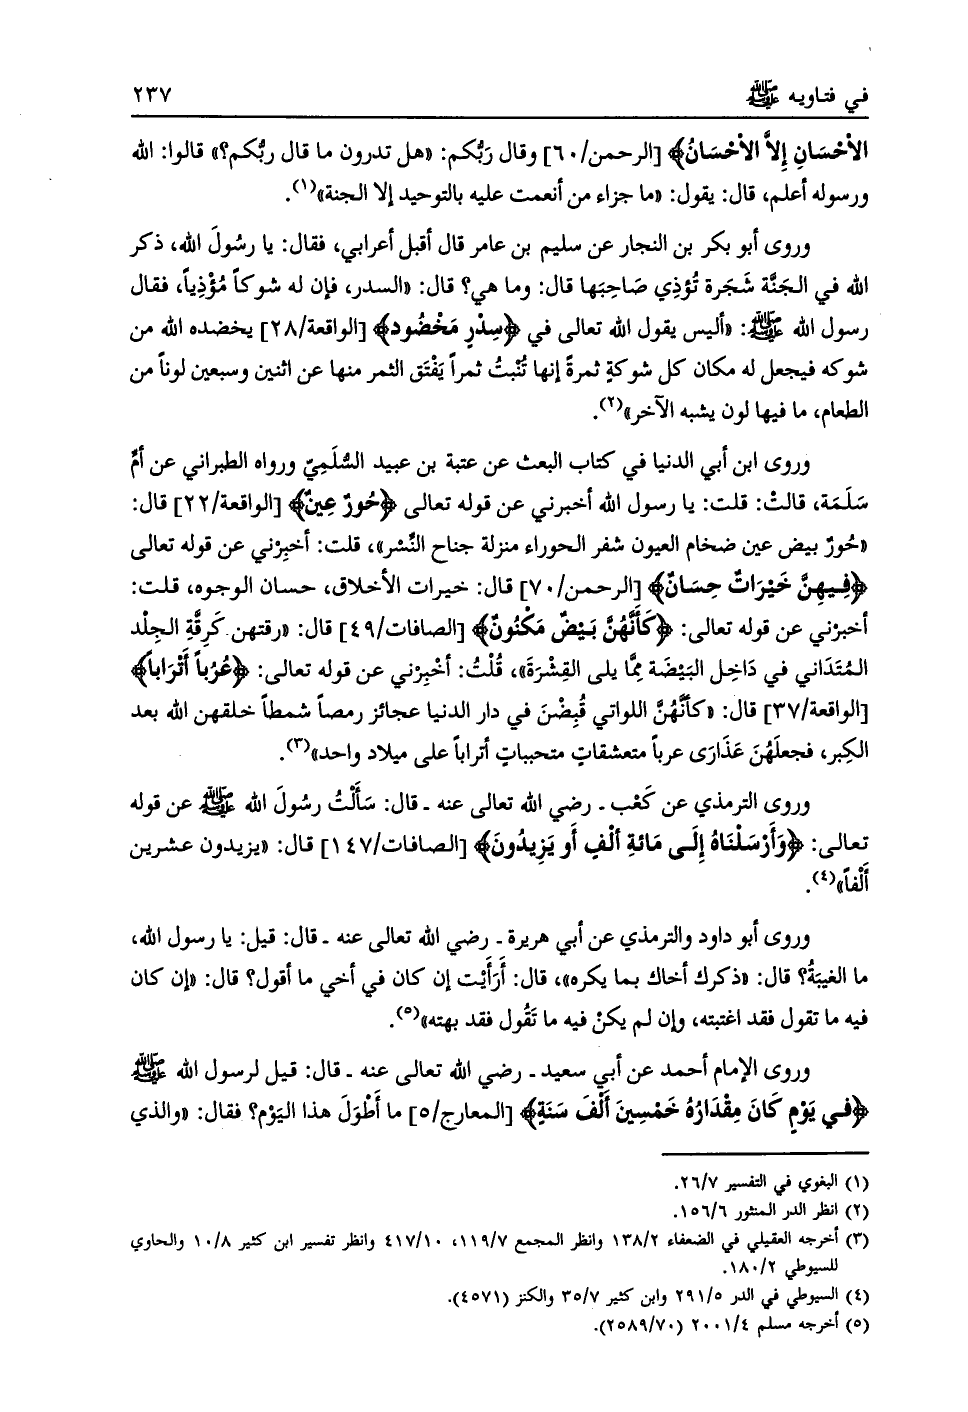 في فتاويه ﷺ
٢٣٧
الأحْسَانِ إِلاَّ الأحْسَانُ﴾ [الرحمن/٦٠] وقال رَبُّكم: «هل تدرون ما قال ربُّكم؟» قالوا: الله
ورسوله أعلم، قال: يقول: «ما جزاء من أنعمت عليه بالتوحيد إلا الجنة»(١).
وروى أبو بكر بن النجار عن سليم بن عامر قال أقبل أعرابي، فقال: يا رسُولَ الله، ذكر
الله في الجَنَّة شَجَرة تُؤذِي صَاحِبَها قال: وما هي؟ قال: «السدر، فإن له شوكاً مُؤْذِياً، فقال
رسول الله ﷺ: «أليس يقول الله تعالى في ﴿سِدْرٍ مَخْضُود﴾ [الواقعة/٢٨] يخضده الله من
شوكه فيجعل له مكان كل شوكةٍ ثمرةً إنها تُنْبتُ ثمراً يَفْتَق الثمر منها عن اثنين وسبعين لوناً من
الطعام، ما فيها لون يشبه الآخر»(٢).
وروى ابن أبي الدنيا في كتاب البعث عن عتبة بن عبيد السُّلَمِيّ ورواه الطبراني عن أمِّ
سَلَمَة، قالتْ: قلت: يا رسول الله أخبرني عن قوله تعالى ﴿حُورٌ عِينٌ﴾ [الواقعة/٢٢] قال:
«حُورٌ بيض عين ضخام العيون شفر الحوراء منزلة جناح النَّسْر»، قلت: أخبِرْني عن قوله تعالى
﴿فِيهِنَّ خَيْرَاتٌ حِسَانٌ﴾ [الرحمن/٧٠] قال: خيرات الأخلاق، حسان الوجوه، قلت:
أخبرْني عن قوله تعالى: ﴿كَأَنَّهُنَّ بَيْضٌ مَكْنُونٌ﴾ [الصافات/٤٩] قال: «رقتهن كَرِقَّةِ الجِلْد
المُتَدَاني في دَاخِل البَيْضَة مِمَّا يلى القِشْرَة»، قُلْتُ: أخْبِرْني عن قوله تعالى: ﴿عُرُباً أتْرَاباً﴾
[الواقعة/٣٧] قال: «كأنَّهُنَّ اللواتي قُبِضْنَ في دار الدنيا عجائز رمصاً شمطاً خلقهن الله بعد
الكِبر، فجعلَهُنَ عَذَارَى عرباً متعشقاتٍ متحبباتٍ أتراباً على ميلاد واحد»(٣).
وروى الترمذي عن كَعْب ـ رضي الله تعالى عنه ـ قال: سَأَلْتُ رسُولَ الله ﷺ عن قوله
تعالى: ﴿وَأَرْسَلْنَاهُ إلَـى مَائةِ ألْفٍ أو يَزِيدُونَ﴾ [الصافات/١٤٧] قال: «يزيدون عشرين
ألْفاً»(٤).
وروى أبو داود والترمذي عن أبي هريرة ـ رضي الله تعالى عنه ـ قال: قيل: يا رسول الله،
ما الغيبَةُ؟ قال: «ذكرك أخاك بما يكره»، قال: أَرَأَيْت إن كان في أخي ما أقول؟ قال: «إن كان
فيه ما تقول فقد اغتبته، وإن لم يكنْ فيه ما تَقُول فقد بهته»(٥).
وروى الإمام أحمد عن أبي سعيد ـ رضي الله تعالى عنه ـ قال: قيل لرسول الله ﷺ
﴿فـي يَوْمٍ كَانَ مِقْدَارُهُ خَمْسِينَ أَلْفَ سَنَةٍ﴾ [المعارج/٥] ما أَطْوَلَ هذا اليَوْم؟ فقال: «والذي
(١) البغوي في التفسير ٢٦/٧.
(٢) انظر الدر المنثور ١٥٦/٦.
(٣) أخرجه العقيلي في الضعفاء ١٣٨/٢ وانظر المجمع ١١٩/٧، ٤١٧/١٠ وانظر تفسير ابن كثير ١٠/٨ والحاوي
للسيوطي ١٨٠/٢.
(٤) السيوطي في الدر ٢٩١/٥ وابن كثير ٣٥/٧ والكنز (٤٥٧١).
(٥) أخرجه مسلم ٢٠٠١/٤ (٢٥٨٩/٧٠).